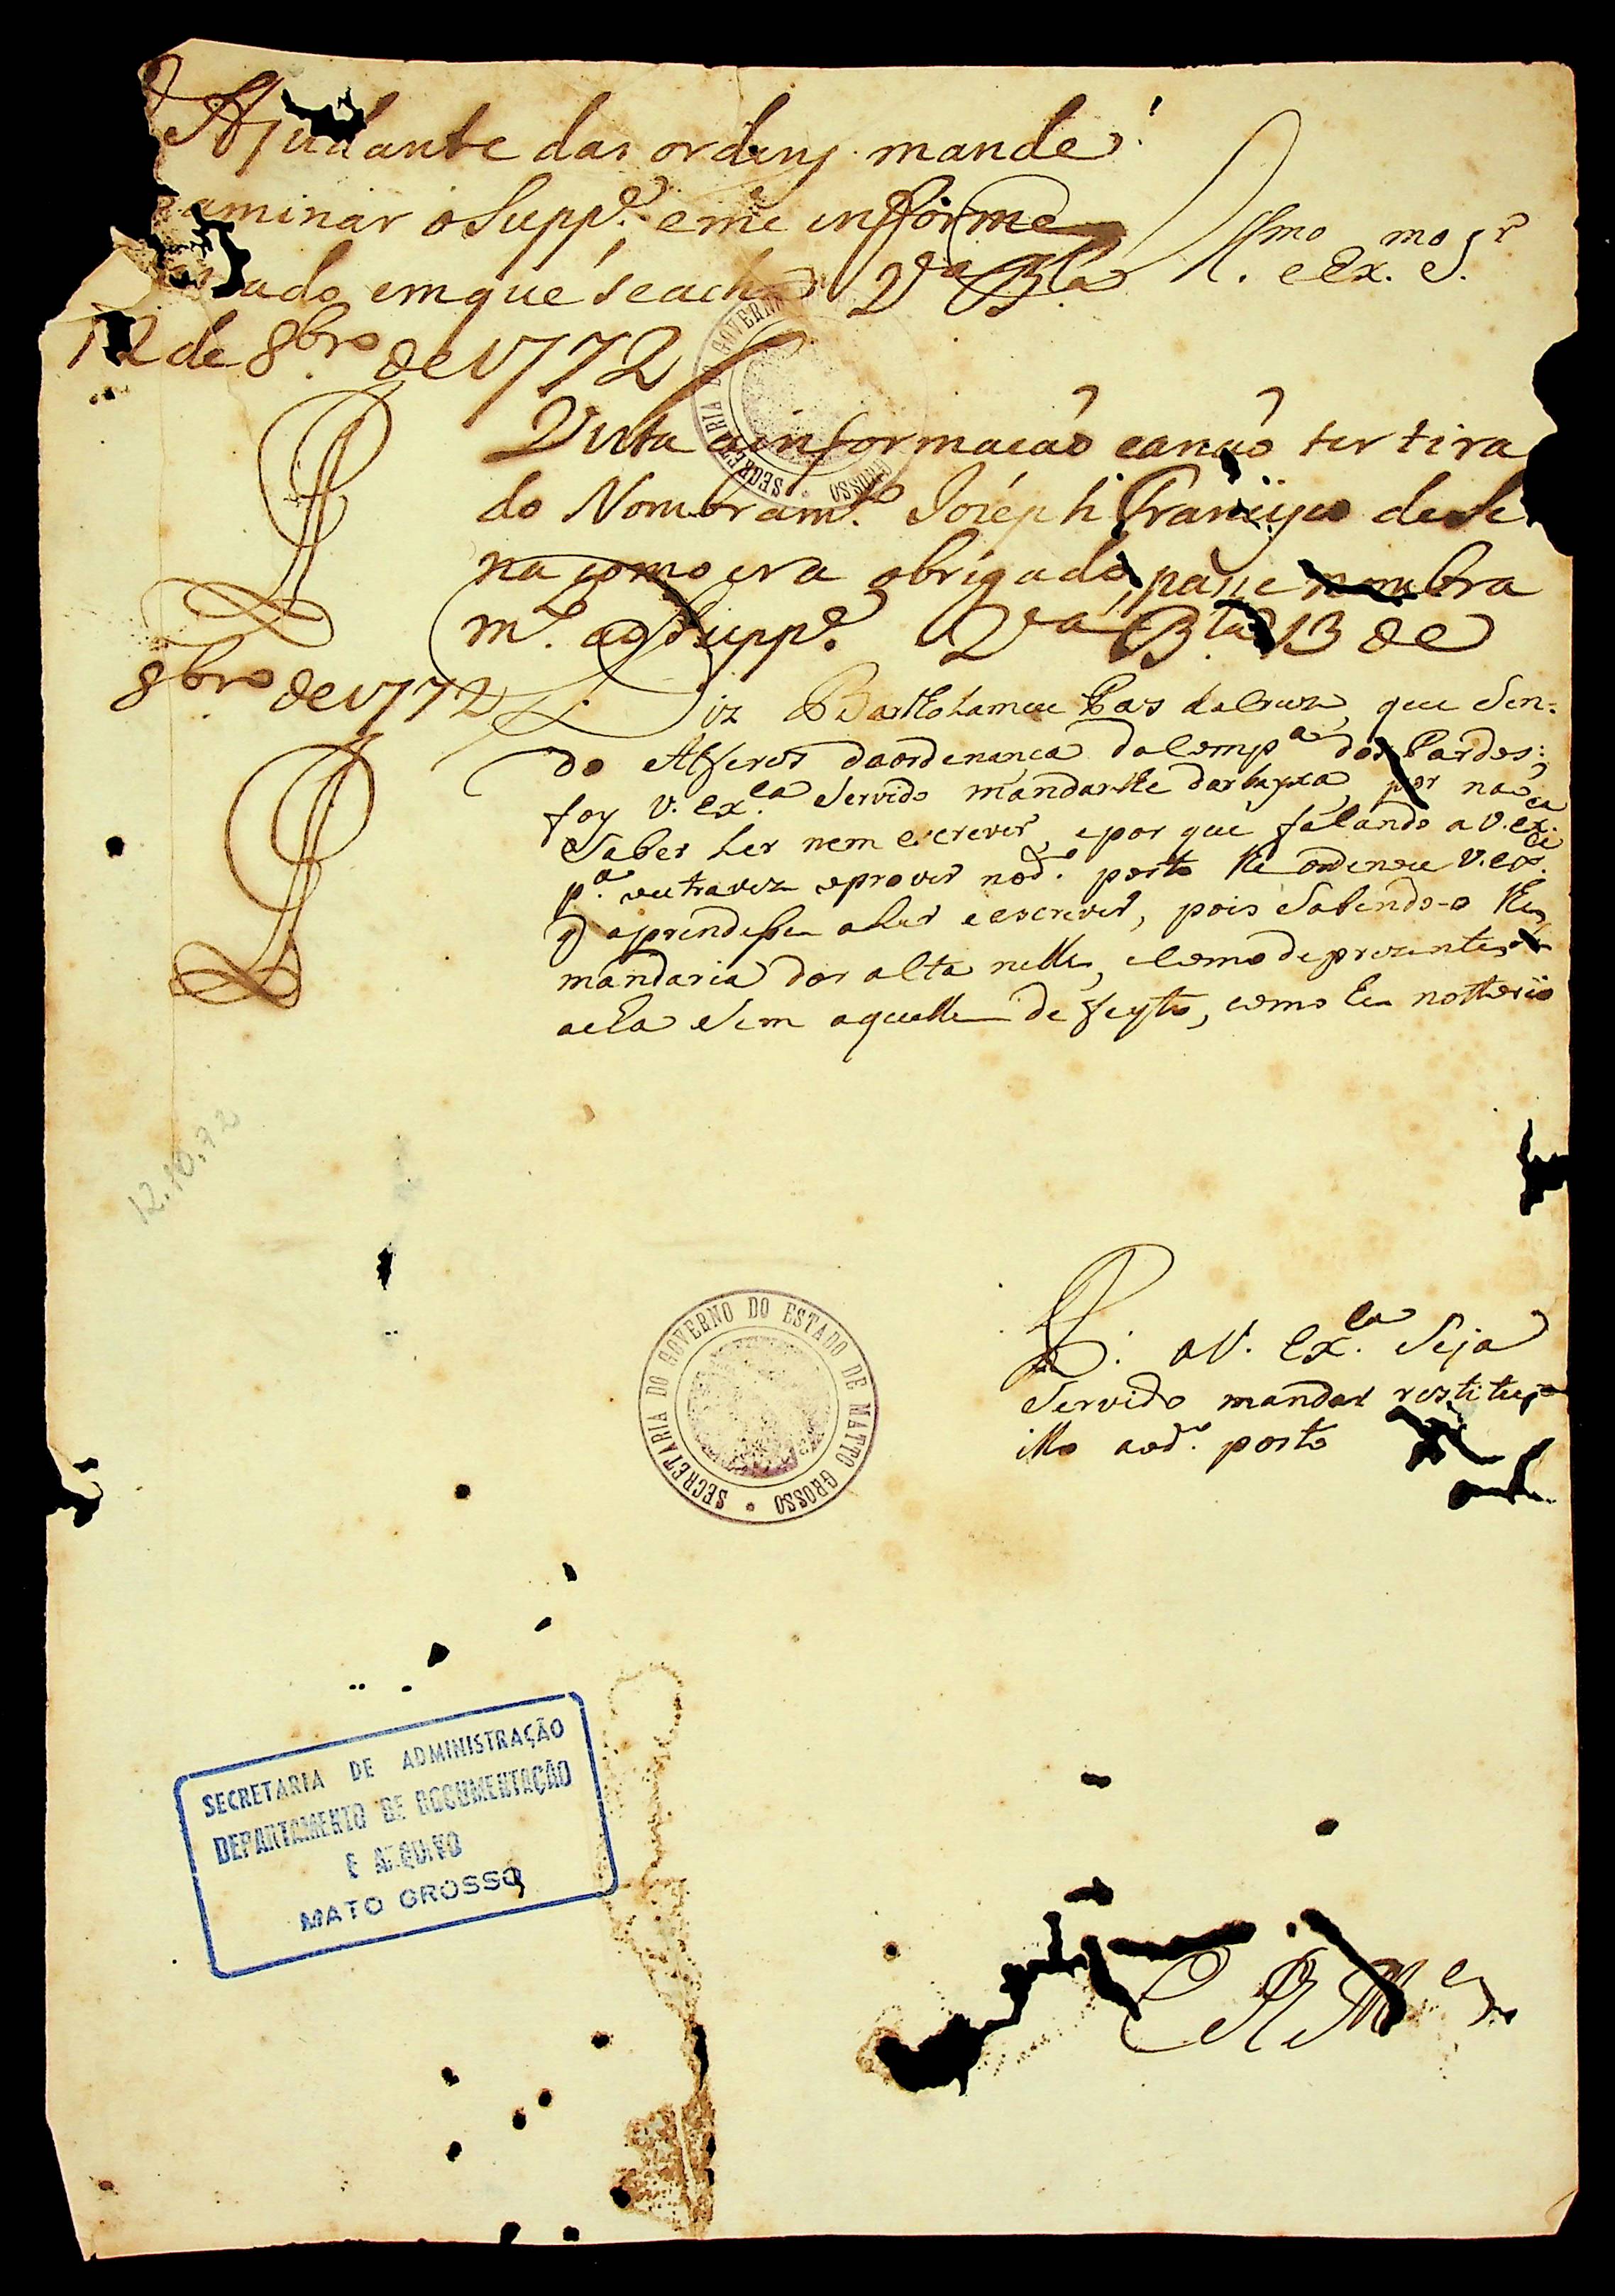 O Ajudante das ordens mande
examinar o Supp.e, e me informe
estado em que se acha V.a B.la
12 de 8.bro de 1772
Ill.mo e Ex.mo S.r
Vista a informacaõ e a naõ ter tira
do Nombram.to Joséph Francisco de Se
na como era obrigado, passe nombra
m.to ao Supp.e V.a B.la 13 de
8.bro de 1772
Diz Bartholameu Pas da Crux, que Sen-
do Alferes da ordenança da Comp.a dos Pardos;
foy V. Ex.ca Servido mandarlhe dar bayxa, por naõ
Saber Ler nem escrever, e por que falando a V. Ex.ca
p.a outra vez o prover no d.o posto lhe ordenou V. Ex.ca
q aprendesse a ler e escrever, pois Sabendo-o lhe
mandaria dar alta nelle, e Como de prezente se
acha Sem aquelle defeyto, como he nottorio
12.10.72
P. a V. Ex.ca Seja
Servido mandar restituy
llo ao d.o posto
E R M.ce
SECRETARIA DO GOVERNO DO ESTADO DE MATTO GROSSO
SECRETARIA DO GOVERNO GROSSO
SECRETARIA DE ADMINISTRAÇÃO
DEPARTAMENTO DE DOCUMENTAÇÃO
E ARQUIVO
MATO GROSSO